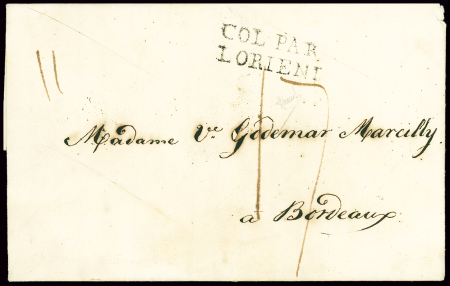 COL PAR
LORIENT
11
17
Madame Vve Godemar Marcilly
a Bordeaux